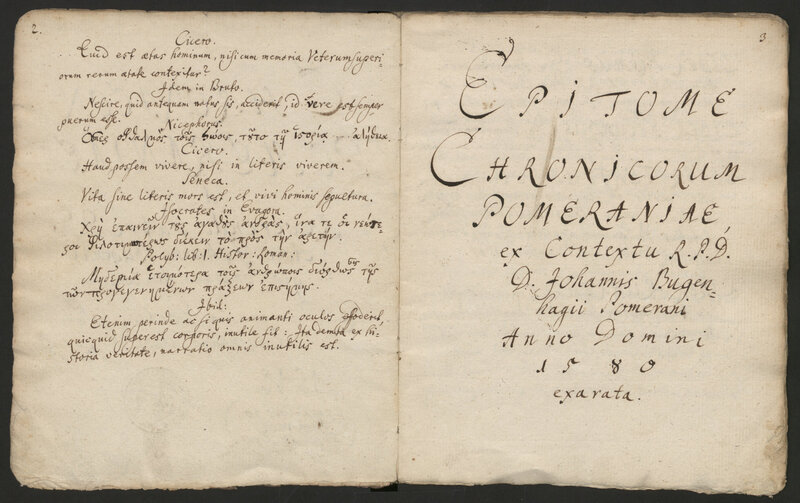 2.
Cicero.
Quid est ætas hominum, nisi cum memoria Veterum superi-
orum rerum ætate contexitur?
Idem in Bruto.
Nescire, quid antequam natus sis, acciderit, id vere est semper
puerum esse.
Nicephorus.
ὀφθαλμὸς τοῖς ζώοις, τȣ͂το τῇ ἱςορίᾳ ἀλήθεια.
Cicero.
Haud possem vivere, nisi in literis viverem.
Seneca.
Vita sine literis mors est, et vivi hominis sepultura.
Isocrates in Evagora.
Χρὴ ἐπαινεῖν τȣ̀ς ἀγαθȣ̀ς ἄνδρας, ἵνα οἱ νεώτε-
ροι φιλοτιμοτέρως πρὸς τὴν ἀρετήν.
Polyb: lib: 1. Histor: Roman:
ἑτοιμότερα τοῖς ἀνθρώποις διόρθωσις τῆς
τῶν προγεγενημένων πράξεων ἐπιςήμης.
Ibid:
Etenim perinde ac si quis animanti oculos effoderit,
quicquid superest corporis, inutile fit: Ita demta ex hi-
storia veritate, narratio omnis inutilis est.
3
EPITOME
CHRONICORUM
POMERANIAE,
ex Contextu R. P. D.
D. Johannis Bugen-
hagii Pomerani
Anno Domini
1580
exarata.